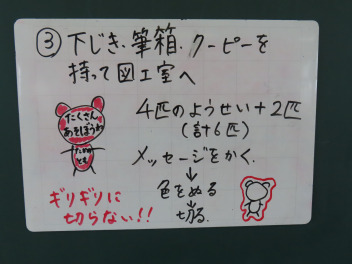 ③下じき、筆箱、クーピーを
持って図工室へ
たくさん
あそぼうね
4匹のようせい+2匹
(計6匹)
メッセージをかく.
↓
色をぬる
↓
切る.
ギリギリに
切らない!!